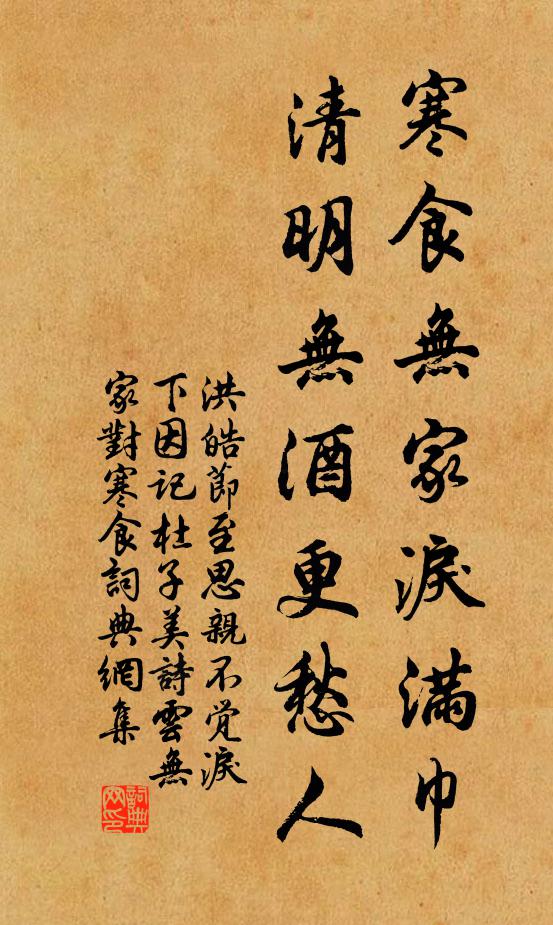 寒食無家淚滿巾
清明無酒更愁人
洪皓節至思親不覚淚
下因記杜子美詩雲無
家對寒食詞典網集
詞典
网印